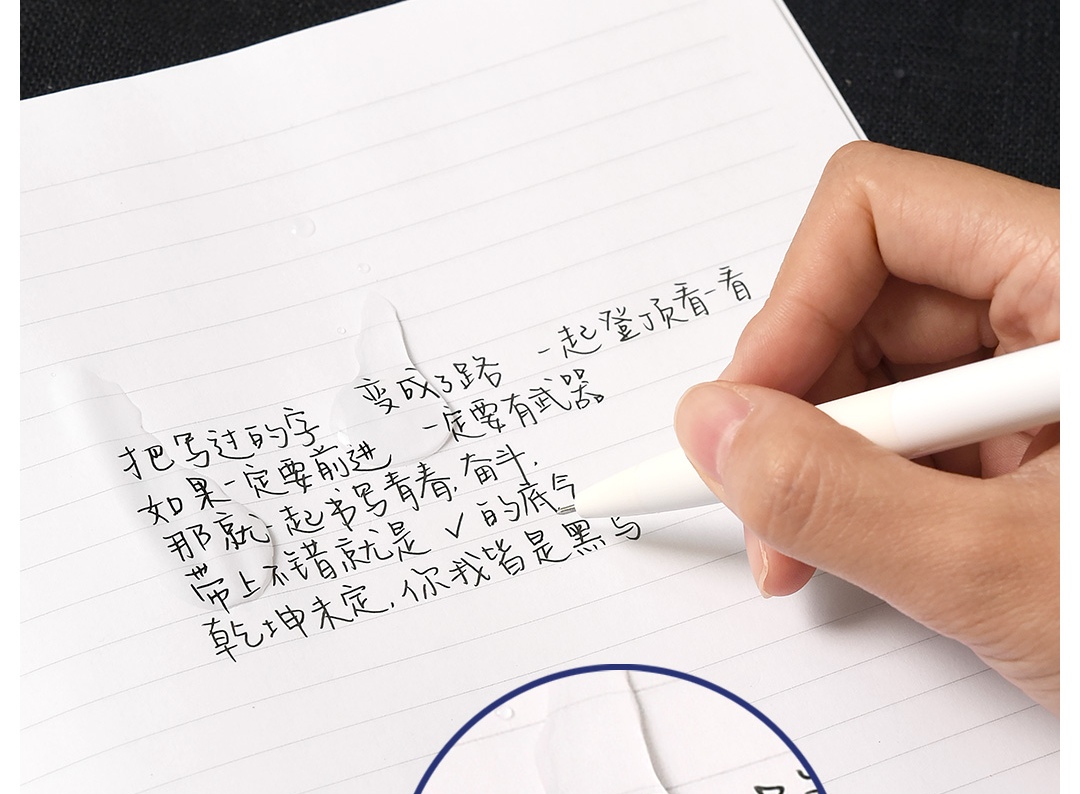 把写过的字 变成了路 一起登顶看一看
如果一定要前进 一定要有武器。
那就一起书写青春,奋斗.
带上不错就是√的底气
乾坤未定,你我皆是黑马